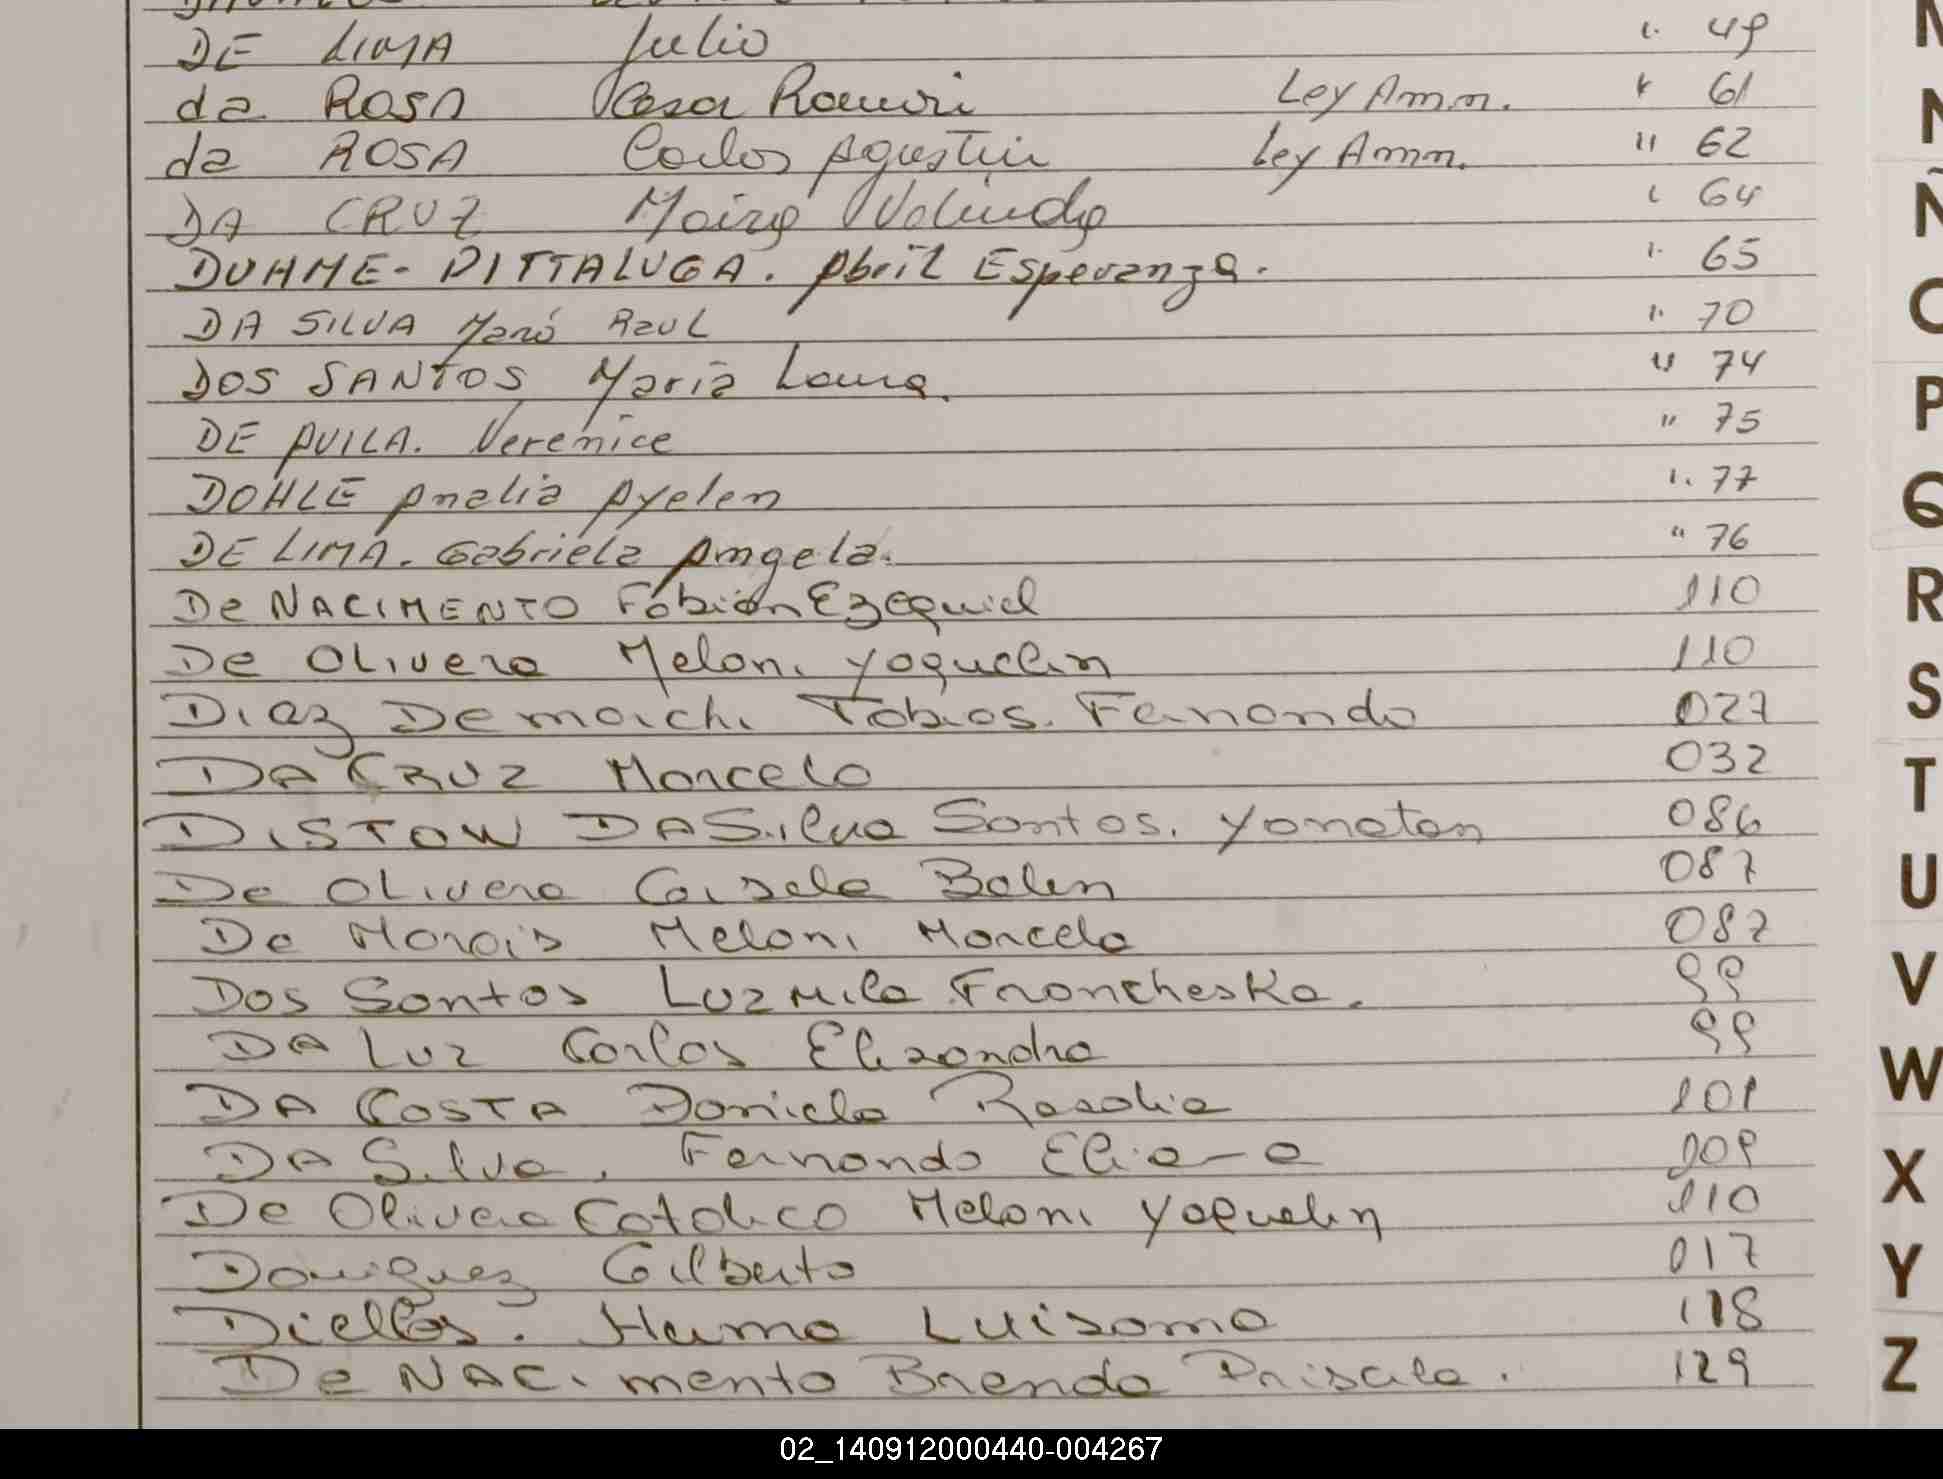 DE LIMA Julio " 49
da ROSA Cesar Ramiri Ley Amn. " 61
da ROSA Carlos Agustin Ley Amn. " 62
DA CRUZ " 64
DUHME- DITTALUGA. Abril Esperanza. " 65
DA SILVA Razul " 70
DOS SANTOS Maria Laura. " 74
DE AVILA. Verenice " 75
DOHLE Analia Ayelen " 77
DE LIMA. Gabriela Angela. " 76
De NACIMENTO Fabián Ezequiel 110
De OLivera Meloni Yoquelin 110
Diaz Demarchi Tobias. Fernando 027
DA CRUZ Marcelo 032
DiSTOW DA Silva Santos. Yonatan 086
De OLivera Gisela Belen 087
De Morais Meloni Marcela 087
Dos Santos LuzMila Francheska. 99
DA Luz Carlos Elizandro 99
DA COSTA Daniela Rosalia 101
DA Silva. Fernando 109
De Olivera Catalico Meloni Yoquelin 110
Domiguez Gilberto 017
Diellos. Luisama 118
De NACimento Brenda Priscila. 129
N
Ñ
O
P
Q
R
S
T
U
V
W
X
Y
Z
02_140912000440-004267